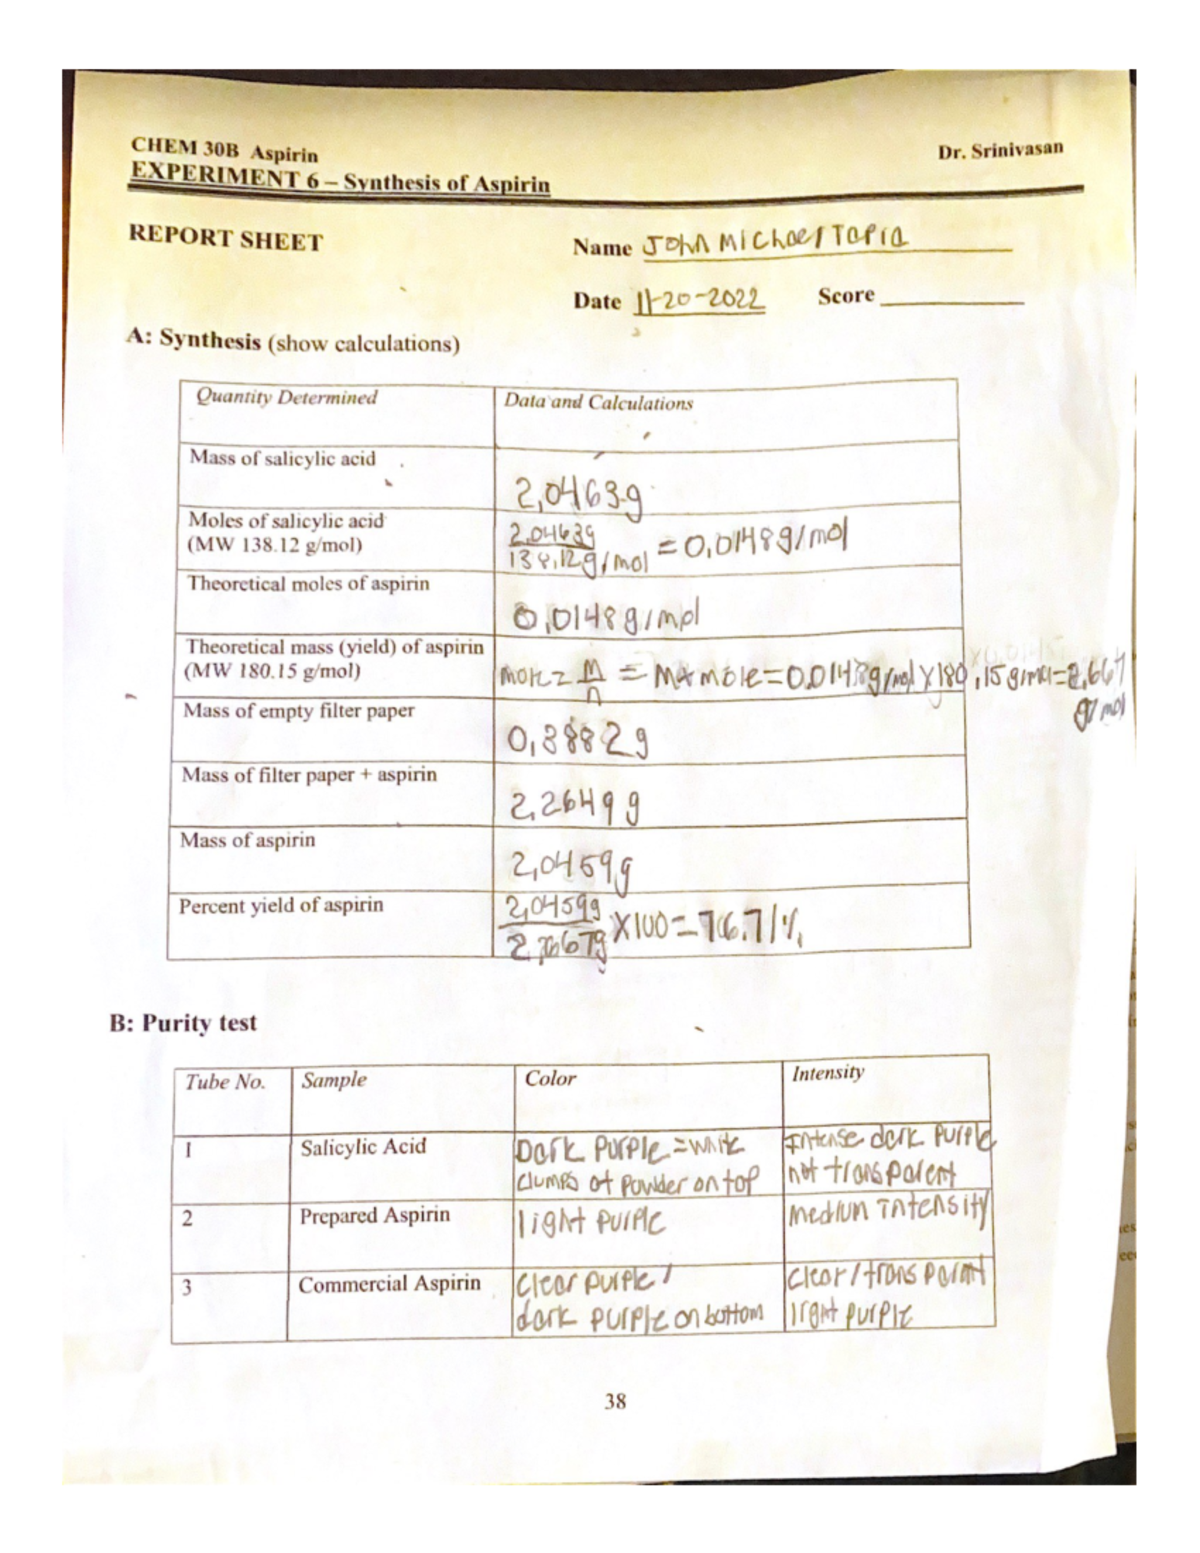 CHEM 30B Aspirin
Dr. Srinivasan
EXPERIMENT 6 – Synthesis of Aspirin
REPORT SHEET
Name John Michael Tapia
Date 11-20-2022 Score
A: Synthesis (show calculations)
Quantity Determined Data and Calculations
Mass of salicylic acid 2,0463g
Moles of salicylic acid
(MW 138.12 g/mol)
2,0463g
138,12g/mol = 0,0148g/mol
Theoretical moles of aspirin 0,0148g/mol
Theoretical mass (yield) of aspirin
(MW 180.15 g/mol)
= M/n = M* mole = 0.0148g/mol x 180,15g/mol = 2,667
g/mol
Mass of empty filter paper 0,3882g
Mass of filter paper + aspirin 2,2649g
Mass of aspirin 2,0459g
Percent yield of aspirin
2,0459g
2,667g x100 = 76.71%
B: Purity test
Tube No. Sample Color Intensity
1 Salicylic Acid Dark purple = white Intense dark purple
clumps of powder on top not transparent
2 Prepared Aspirin light purple medium intensity
3 Commercial Aspirin clear purple / clear/transparant
dark purple on bottom light purple
38